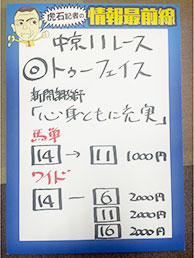 虎石記者の
情報最前線
中京11レース
◎トゥーフェイス
「心身ともに充実」
馬単
14→11 1000円
ワイド
14－6 2000円
11 2000円
16 2000円